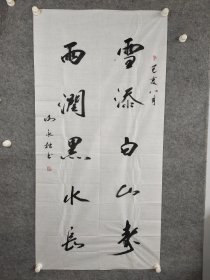 雪添白山秀
雨润黑水长
己亥八月